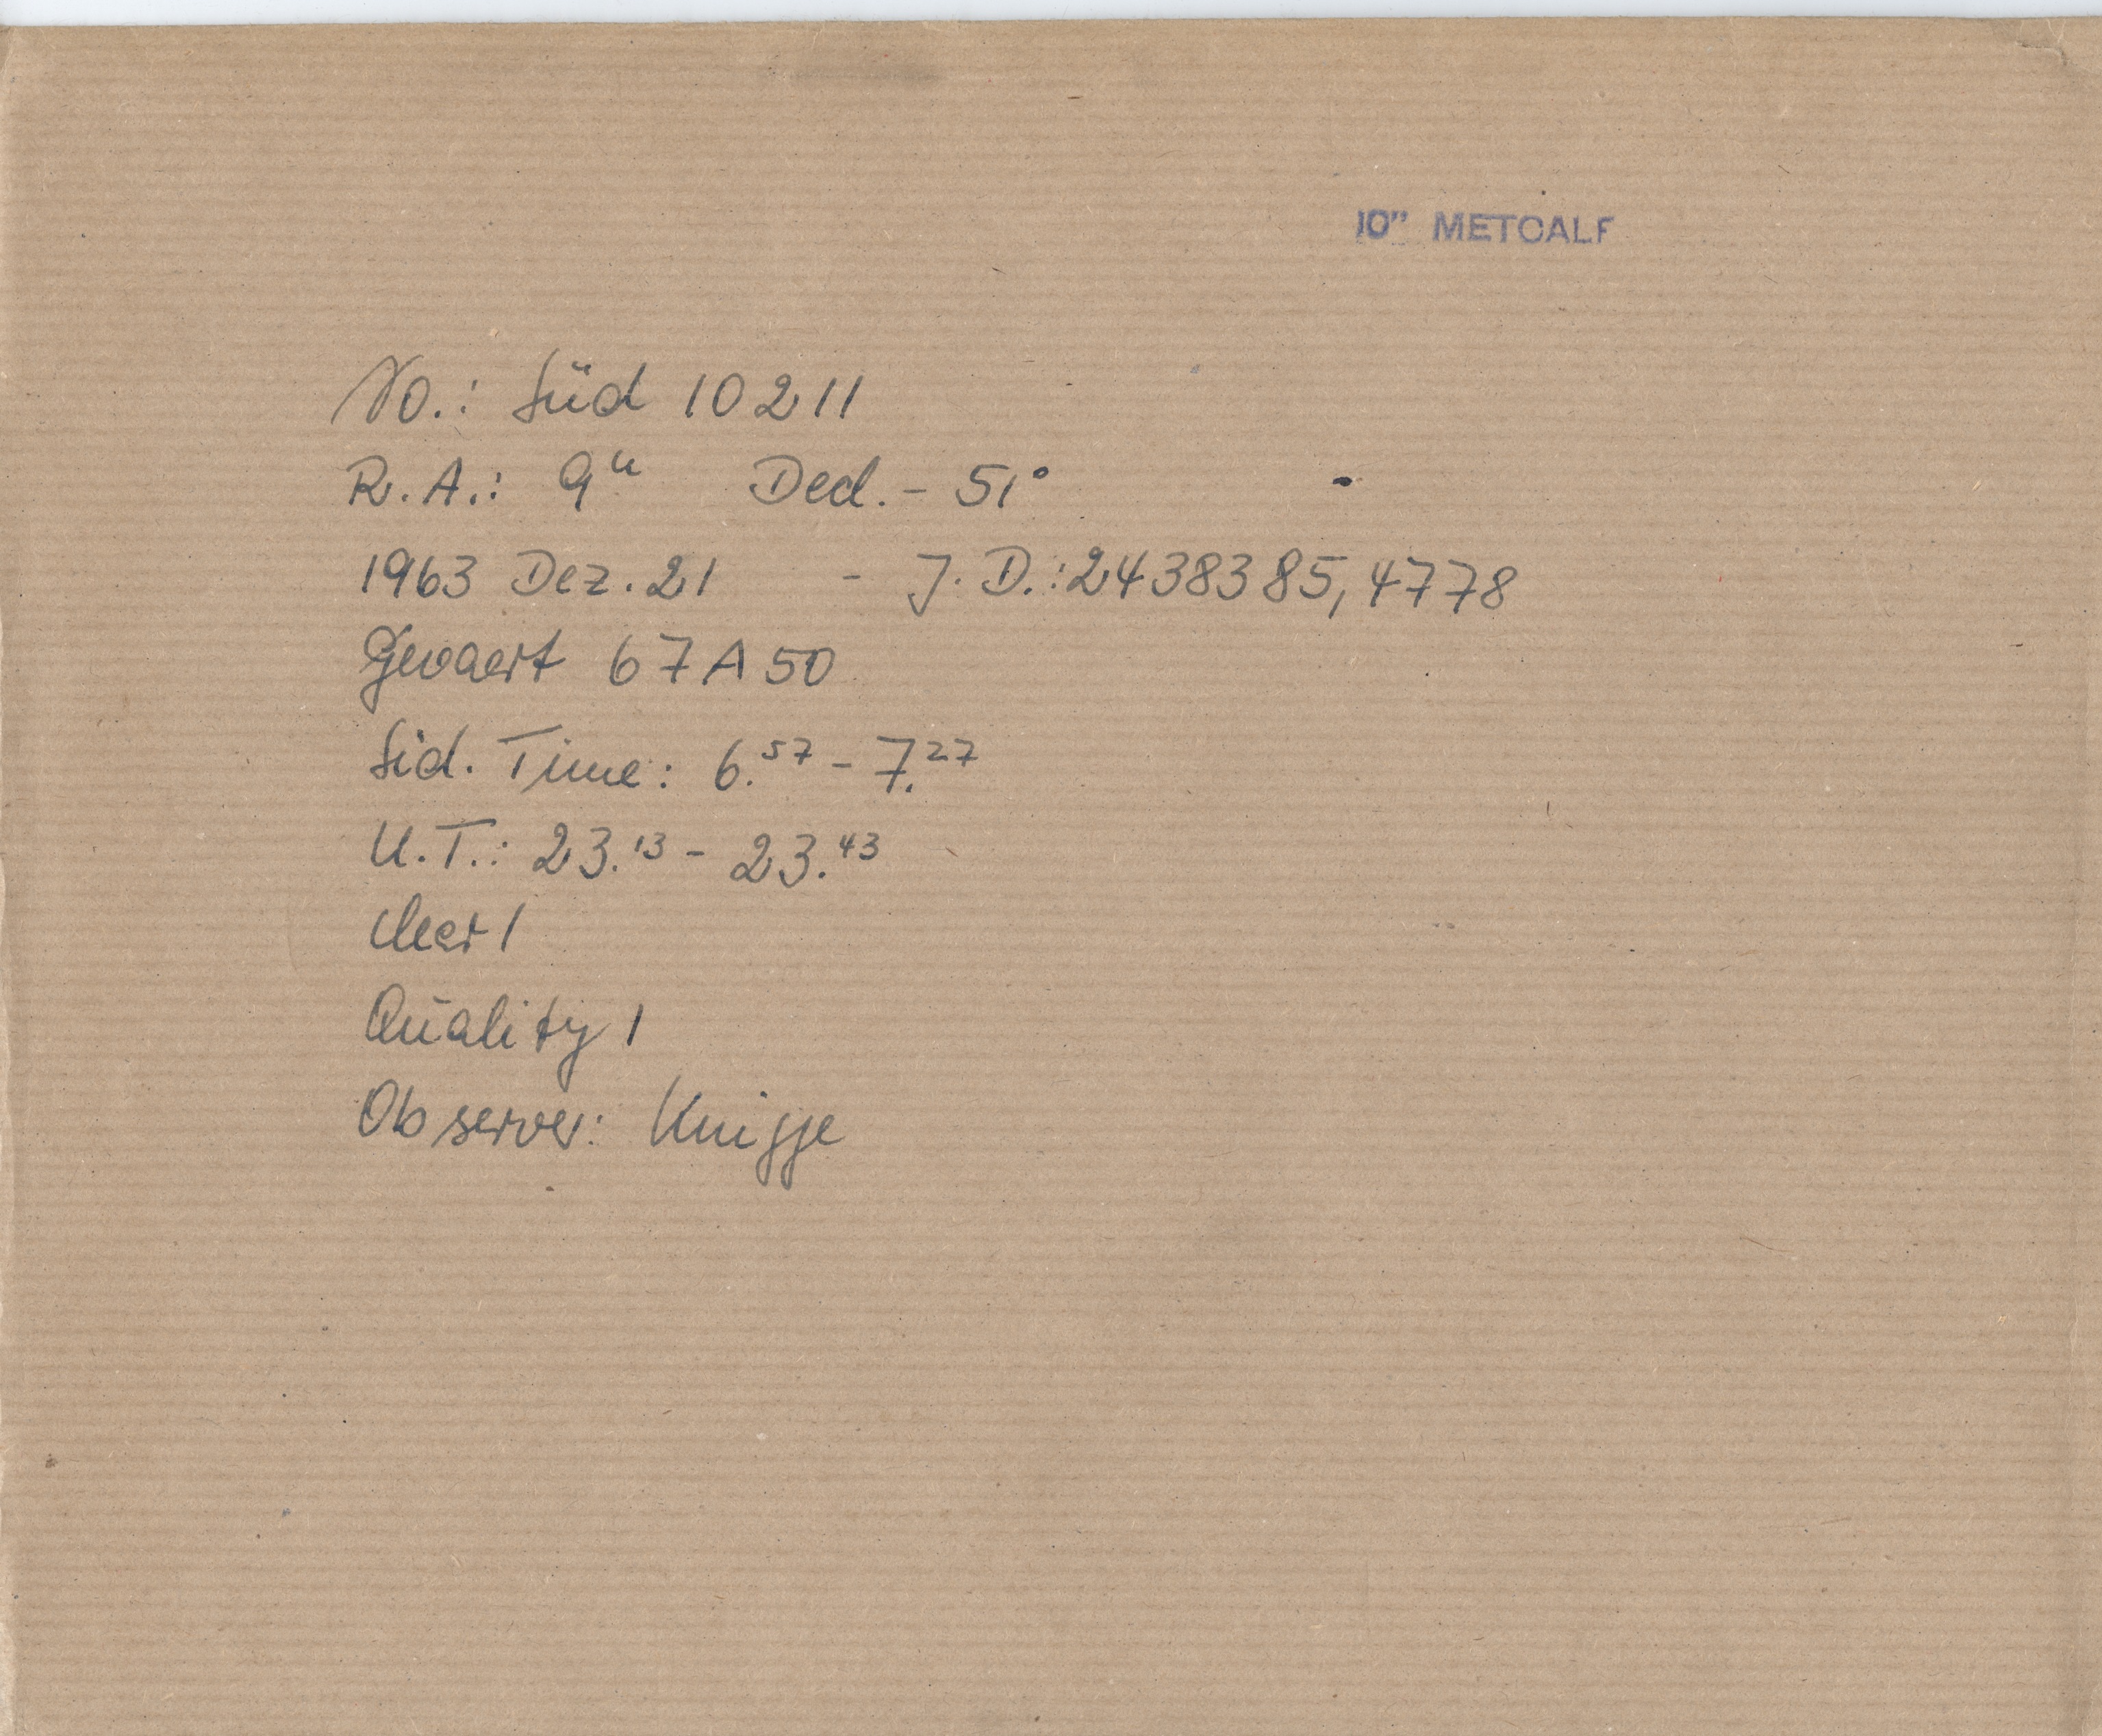 10" METCALF
No.: Süd 10211
R.A.: 9ʰ Decl. - 51°
1963 Dez. 21 - J. D.: 2438385,4778
Gevaert 67A50
Sid. Time: 6.⁵⁷ - 7.²⁷
U.T.: 23.¹³ - 23.⁴³
clear 1
Quality 1
Observer: Knigge